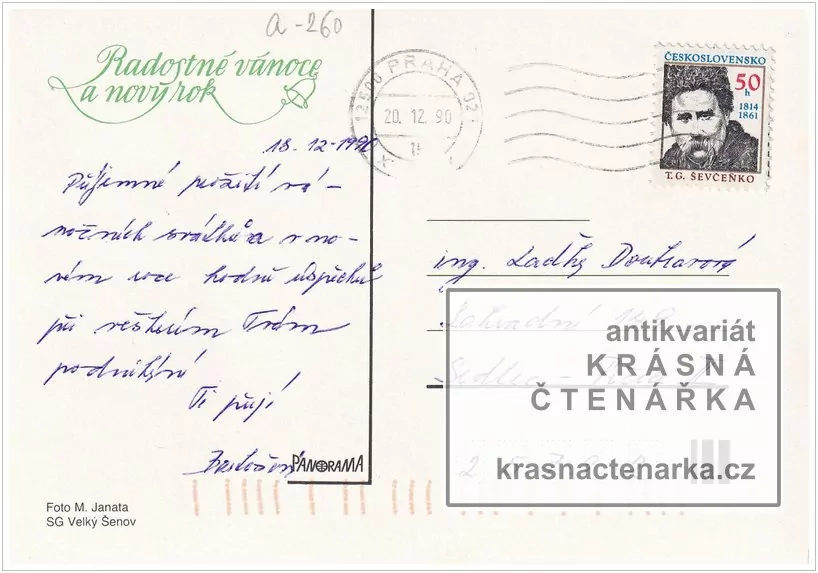 a-260
Radostné vánoce
a nový rok
18.12-1990
Příjemné prožití vá-
nočních svátků a v no-
vém roce hodně úspěchů
při veškerém Tvém
podnikání
Ti přejí
PANORAMA
Foto M. Janata
SG Velký Šenov
12500 PRAHA 02
20. 12. 90
ČESKOSLOVENSKO
50 h
1814
1861
T. G. ŠEVČENKO
ing.
Zahradní
Sedlec -
antikvariát
KRÁSNÁ
ČTENÁŘKA
krasnactenarka.cz